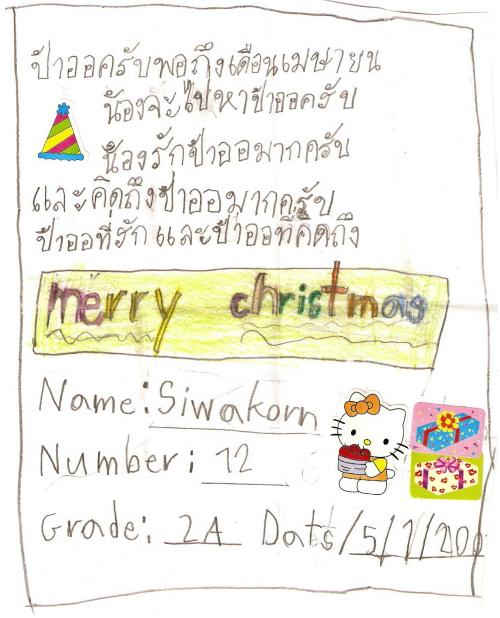 ป้าออครับพอถึงเดือนเมษายน
น้องจะไปหาป้าออครับ
น้องรักป้าออมากครับ
และคิดถึงป้าออมากครับ
ป้าออที่รักและป้าออที่คิดถึง
merry christmas
Name: Siwakorn
Number: 12
Grade: 2A Dats/5/1/200